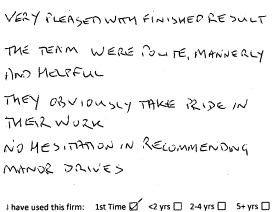 VERY PLEASED WITH FINISHED RESULT
THE TEAM WERE POLITE, MANNERLY
AND HELPFUL
THEY OBVIOUSLY TAKE PRIDE IN
THEIR WORK
NO HESITATION IN RECOMMENDING
MANOR DRIVES
I have used this firm: 1st Time ☑ <2 yrs ☐ 2-4 yrs ☐ 5+ yrs ☐